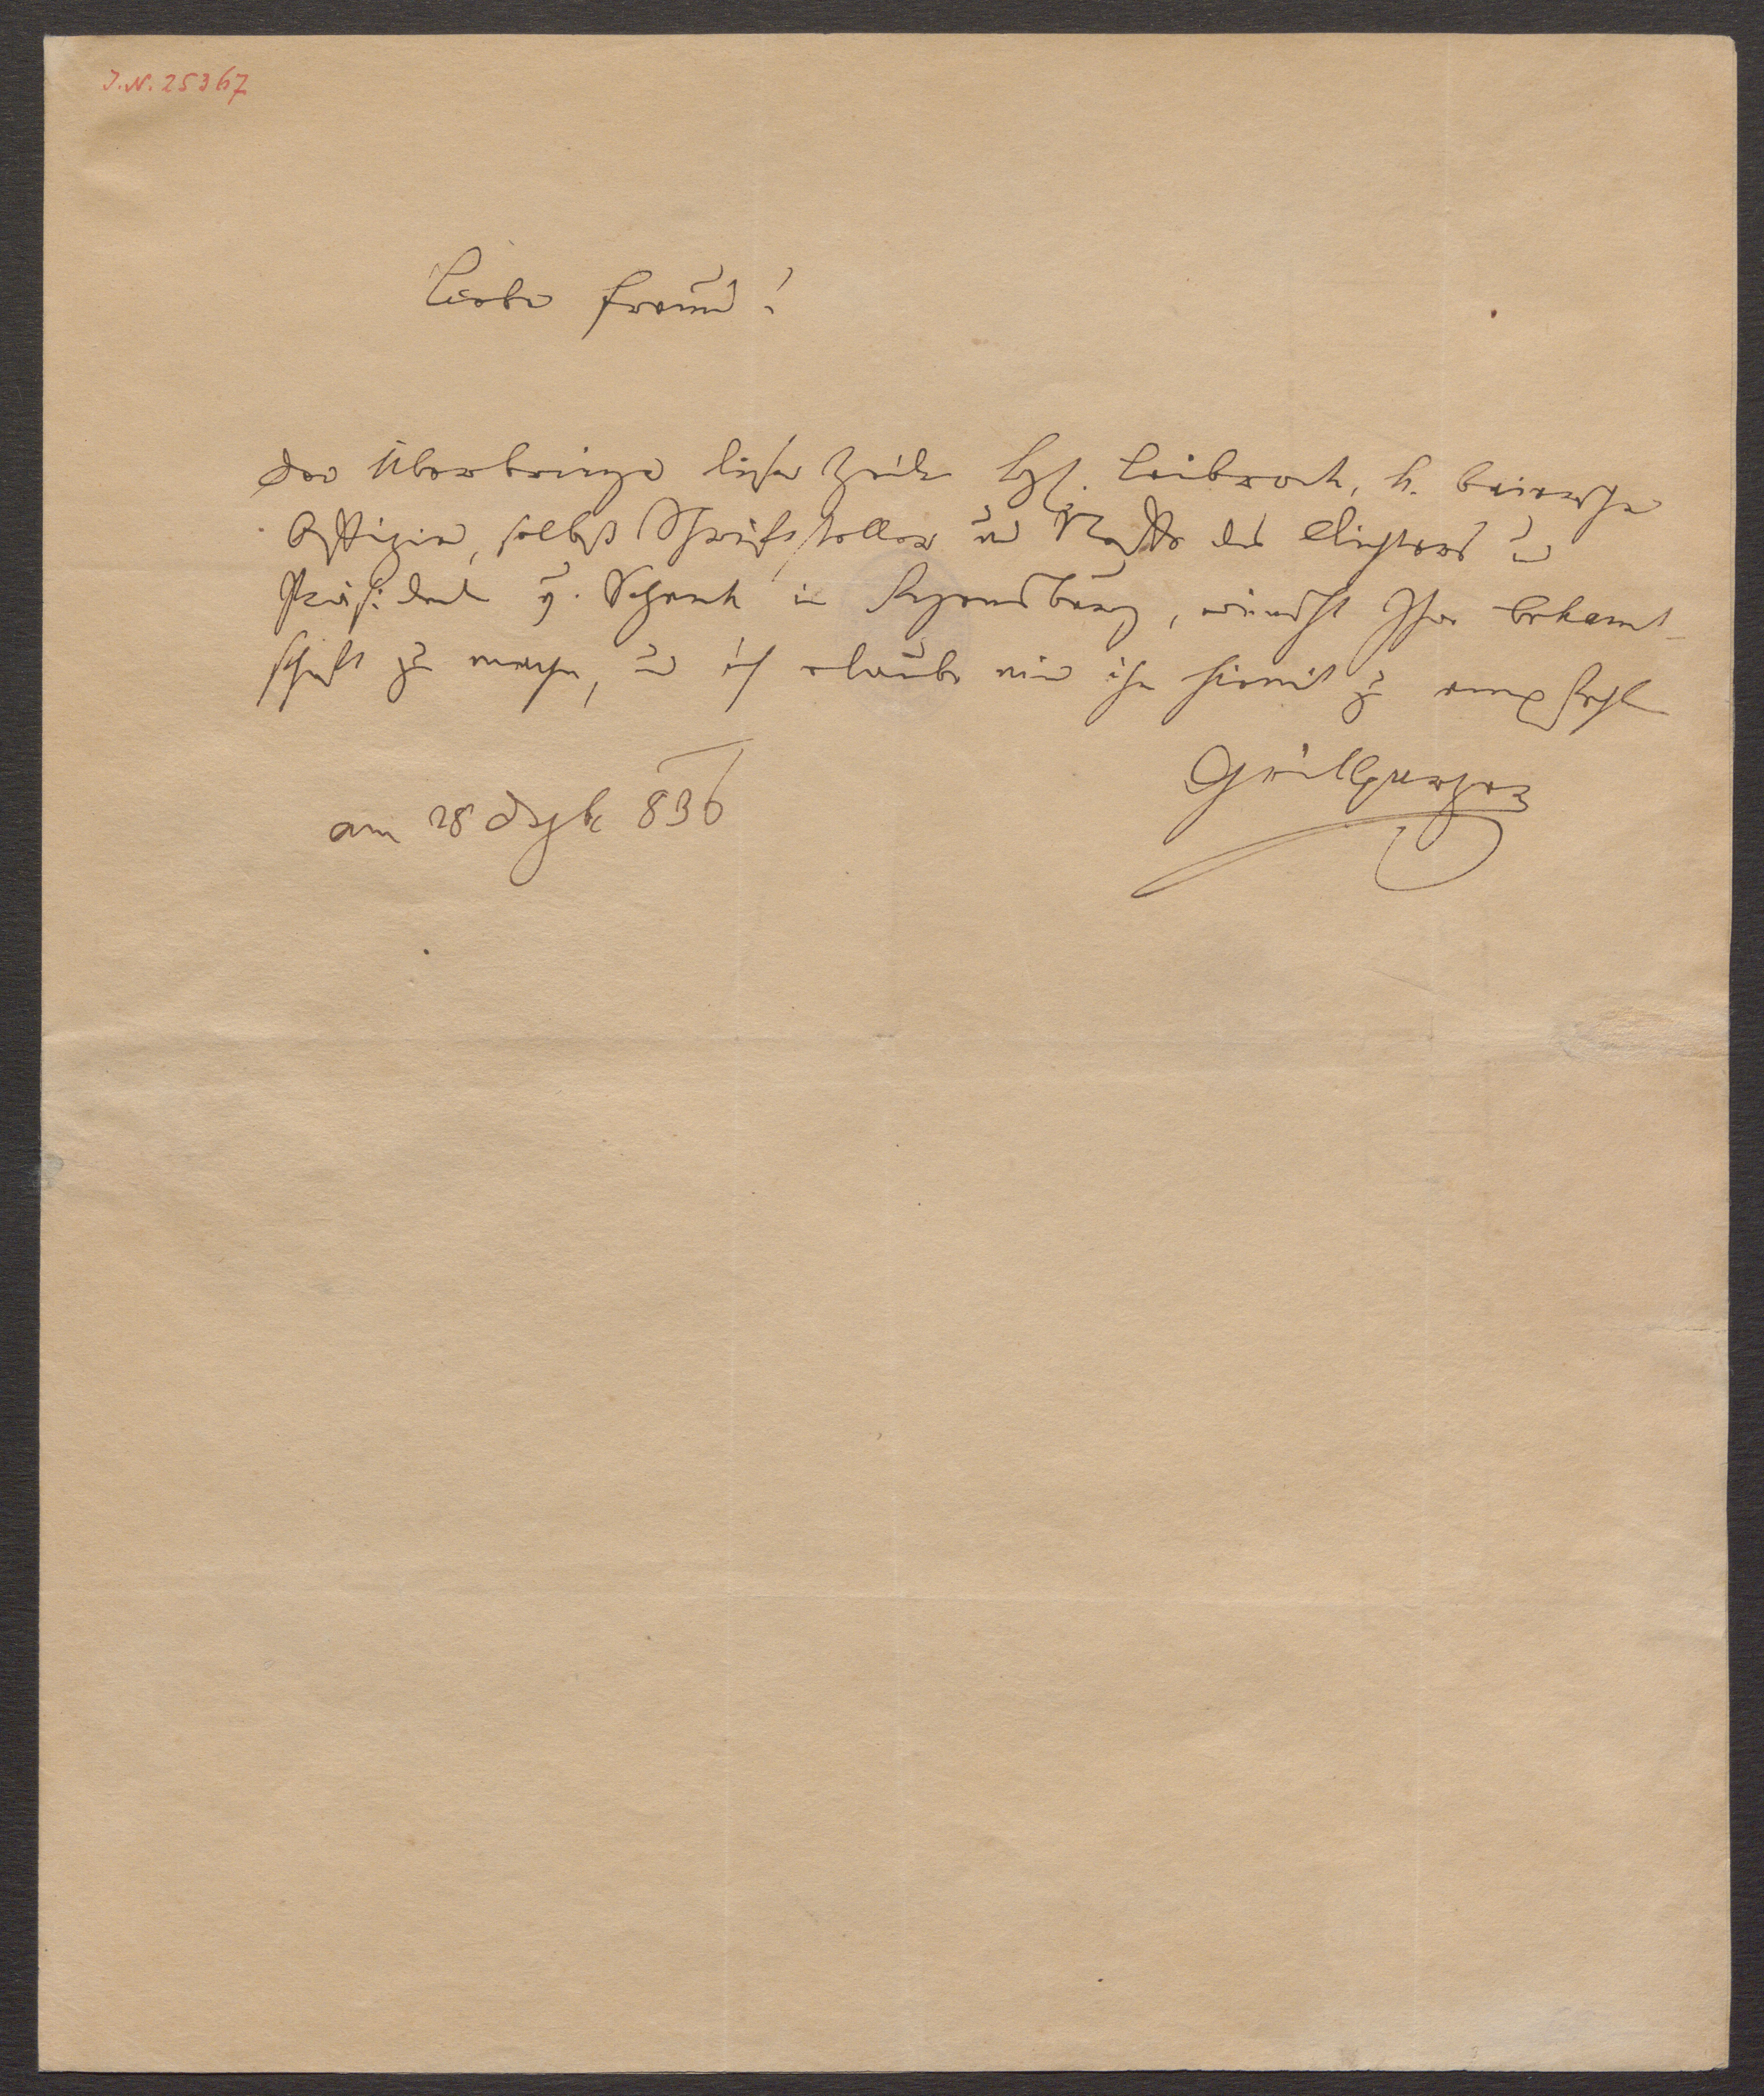 J.N. 25367
Lieber Freund!
Der Überbringer dieser Zeilen H. Leibrock, k. baierischer
Offizier, selbst Schriftsteller und Neffe des Dichters und
Präsidenten v. Schenk in Regensburg, wünscht Ihre Bekannt-
schaft zu machen, und ich erlaube mir ihn hiemit zu empfehlen
Grillparzer
am 28 Dezbr 836